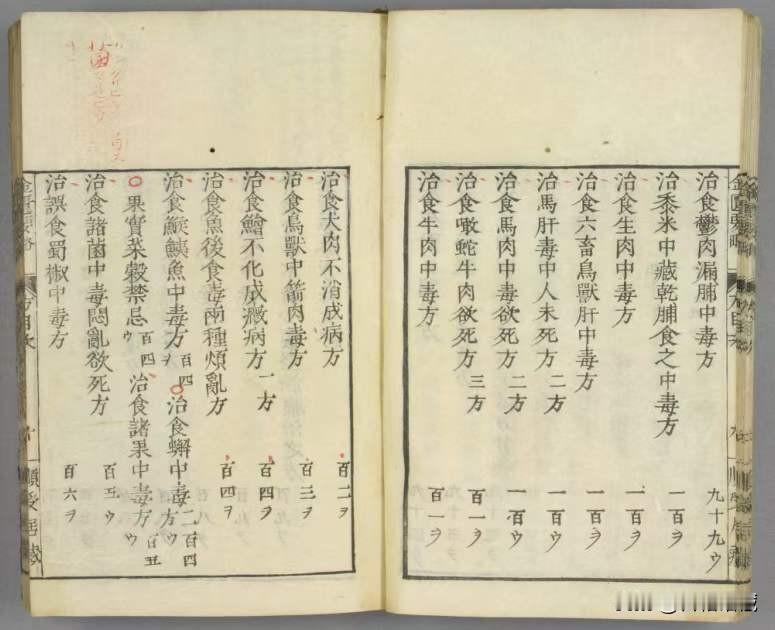 治食鬱肉漏脯中毒方 九十九ウ
治黍米中藏乾脯食之中毒方 一百ヲ
治食生肉中毒方 一百ヲ
治食六畜鳥獸肝中毒方 一百ヲ
治馬肝毒中人未死方 二方 一百ウ
治食馬肉中毒欲死方 二方 一百ウ
治食噉蛇牛肉欲死方 三方 百一ヲ
治食牛肉中毒方 百一ヲ
治食犬肉不消成病方 百二ヲ
治食鳥獸中箭肉毒方 百三ヲ
治食鱠不化成癥病方 一方 百四ヲ
治食魚後食毒兩種煩亂方 百四ヲ
治食鯸鮧魚中毒方 百四ヲ 治食蟹中毒方 二方 百四ウ
果實菜穀禁忌 百四ウ 治食諸果中毒方 百五ウ
治食諸菌中毒悶亂欲死方 百五ウ
治誤食蜀椒中毒方 百六ヲ